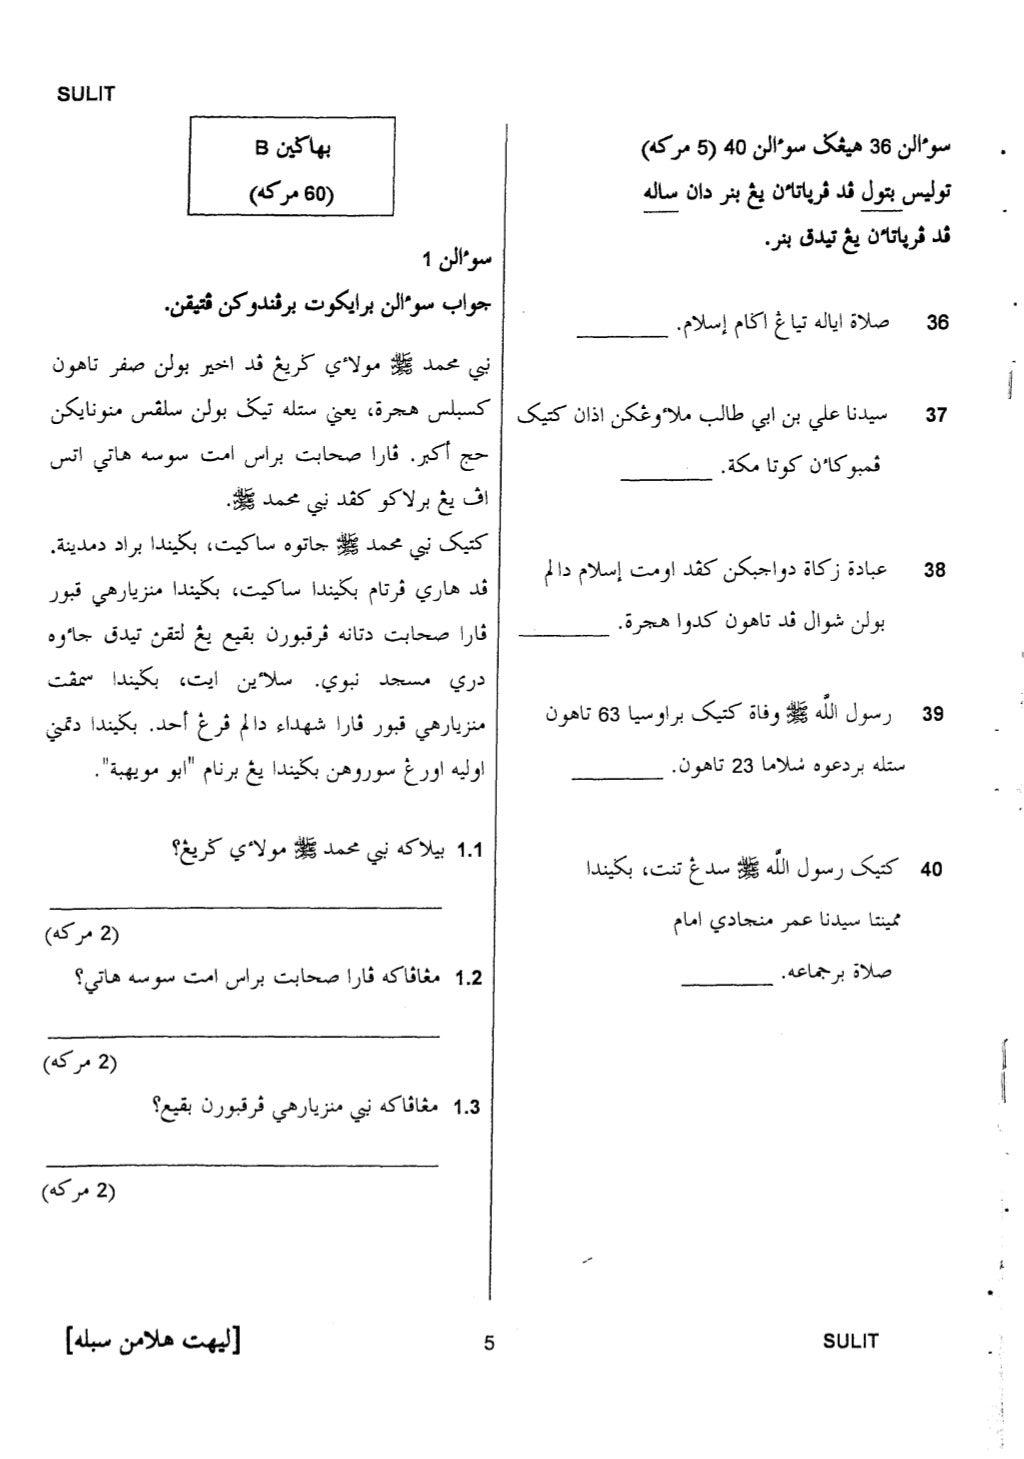 SULIT
سوءالن 36 هيڠݢ سوءالن 40 (5 مركه)
توليس بتول ڤد ڤرياتاءن يڠ بنر دان ساله
ڤد ڤرياتاءن يڠ تيدق بنر.
36 صلاة اياله تياڠ اݢام إسلام. ________
37 سيدنا علي بن ابي طالب ملاءوڠكن اذان كتيک
ڤمبوكاءن كوتا مكة. ________
38 عبادة زكاة دواجبكن كڤد اومت إسلام دالم
بولن شوال ڤد تاهون كدوا هجرة. ________
39 رسول اللّه ﷺ وفاة كتيک براوسيا 63 تاهون
ستله بردعوه سلاما 23 تاهون. ________
40 كتيک رسول اللّه ﷺ سدڠ تنت، بݢيندا
ممينتا سيدنا عمر منجادي امام
صلاة برجماعه. ________
بهاݢين B
(60 مركه)
سوءالن 1
جواب سوءالن برايكوت برڤندوكن ڤتيقن.
نبي محمد ﷺ مولاءي كريڠ ڤد اخير بولن صفر تاهون
كسبلس هجرة، يعني ستله تيݢ بولن سلڤس منونايكن
حج أكبر. ڤارا صحابت براس امت سوسه هاتي اتس
اڤ يڠ برلاكو كڤد نبي محمد ﷺ.
كتيک نبي محمد ﷺ جاتوه ساكيت، بݢيندا براد دمدينة.
ڤد هاري ڤرتام بݢيندا ساكيت، بݢيندا منزيارهي قبور
ڤارا صحابت دتانه ڤرقبورن بقيع يڠ لتقن تيدق جاءوه
دري مسجد نبوي. سلاءين ايت، بݢيندا سمڤت
منزيارهي قبور ڤارا شهداء دالم ڤرڠ أحد. بݢيندا دتمني
اوليه اورڠ سوروهن بݢيندا يڠ برنام "ابو مويهبة".
1.1 بيلاكه نبي محمد ﷺ مولاءي كريڠ؟
(2 مركه)
1.2 مڠاڤاكه ڤارا صحابت براس امت سوسه هاتي؟
(2 مركه)
1.3 مڠاڤاكه نبي منزيارهي ڤرقبورن بقيع؟
(2 مركه)
[ليهت هلامن سبله]
5
SULIT